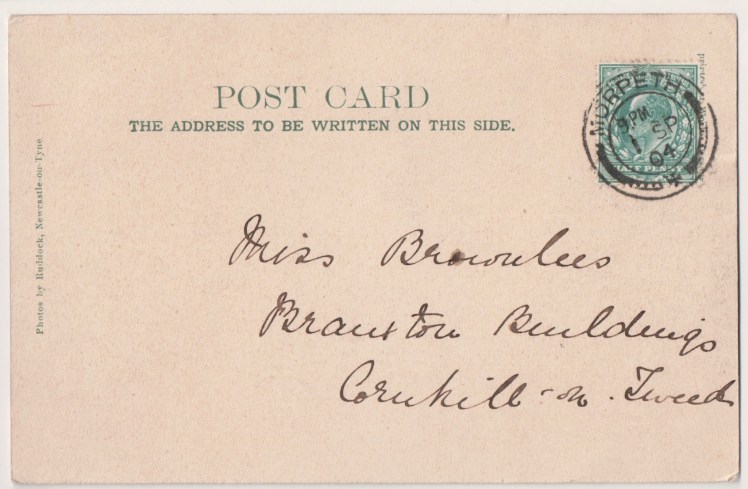 POST CARD
THE ADDRESS TO BE WRITTEN ON THIS SIDE.
MORPETH
9 PM
SP 1
04
HALF PENNY
Miss Brownlees
Branxton Buildings
Cornhill-on-Tweed
Photos by Ruddock, Newcastle-on-Tyne